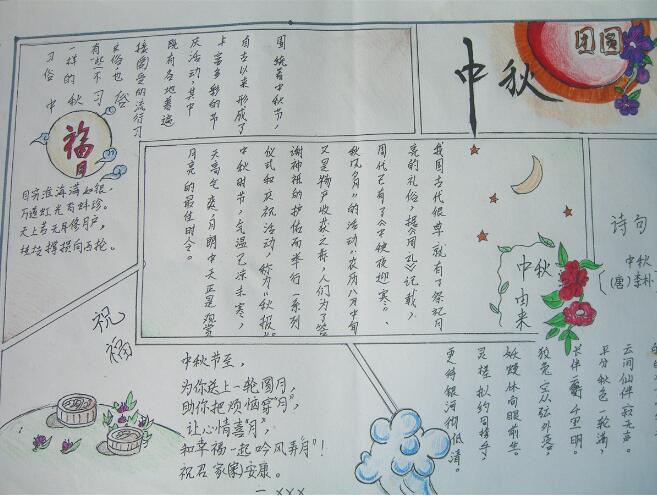 中秋
团圆
围绕着中秋节，
自古以来形成了
丰富多彩的节
庆活动，其中
既有各地普遍
接受的流行习
俗，也
有一些不
一样的
习俗
中秋习俗
福
目穷淮海满如银，
万道虹光育蚌珍。
天上若无修月户，
桂枝撑损向西轮。
我国古代很早就有了祭祀月
亮的礼俗，据《周礼》记载，
周代已有了“中秋夜迎寒”、
的活动，农历八月中旬
又是物产收获之季，人们为了答
谢神祖的护佑而举行一系列
仪式和庆祝活动，称为“秋报”。
中秋时节，气温已凉未寒，
天高气爽，月朗中天正是观赏
月亮的最佳时令。
中秋
由来
诗句
中秋
(唐)李朴
平分秋色一轮满，
长伴云衢千里明。
狡兔空从弦外落，
妖蟆休向眼前生。
灵槎拟约同携手，
更待银河彻底清。
祝福
中秋节至，
为你送上一轮圆月，
助你把烦恼穿“月”，
让心情喜“月”，
和幸福一起吟风弄“月”！
祝君家安康。
—×××